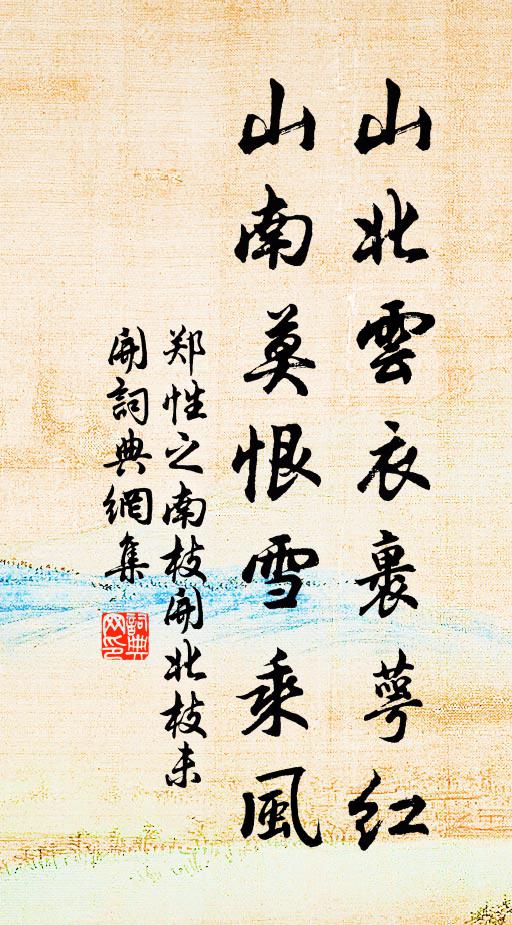 山北雲衣裹萼红
山南莫恨雪乘風
郑性之南枝開北枝未
開詞典網集
詞典
网印